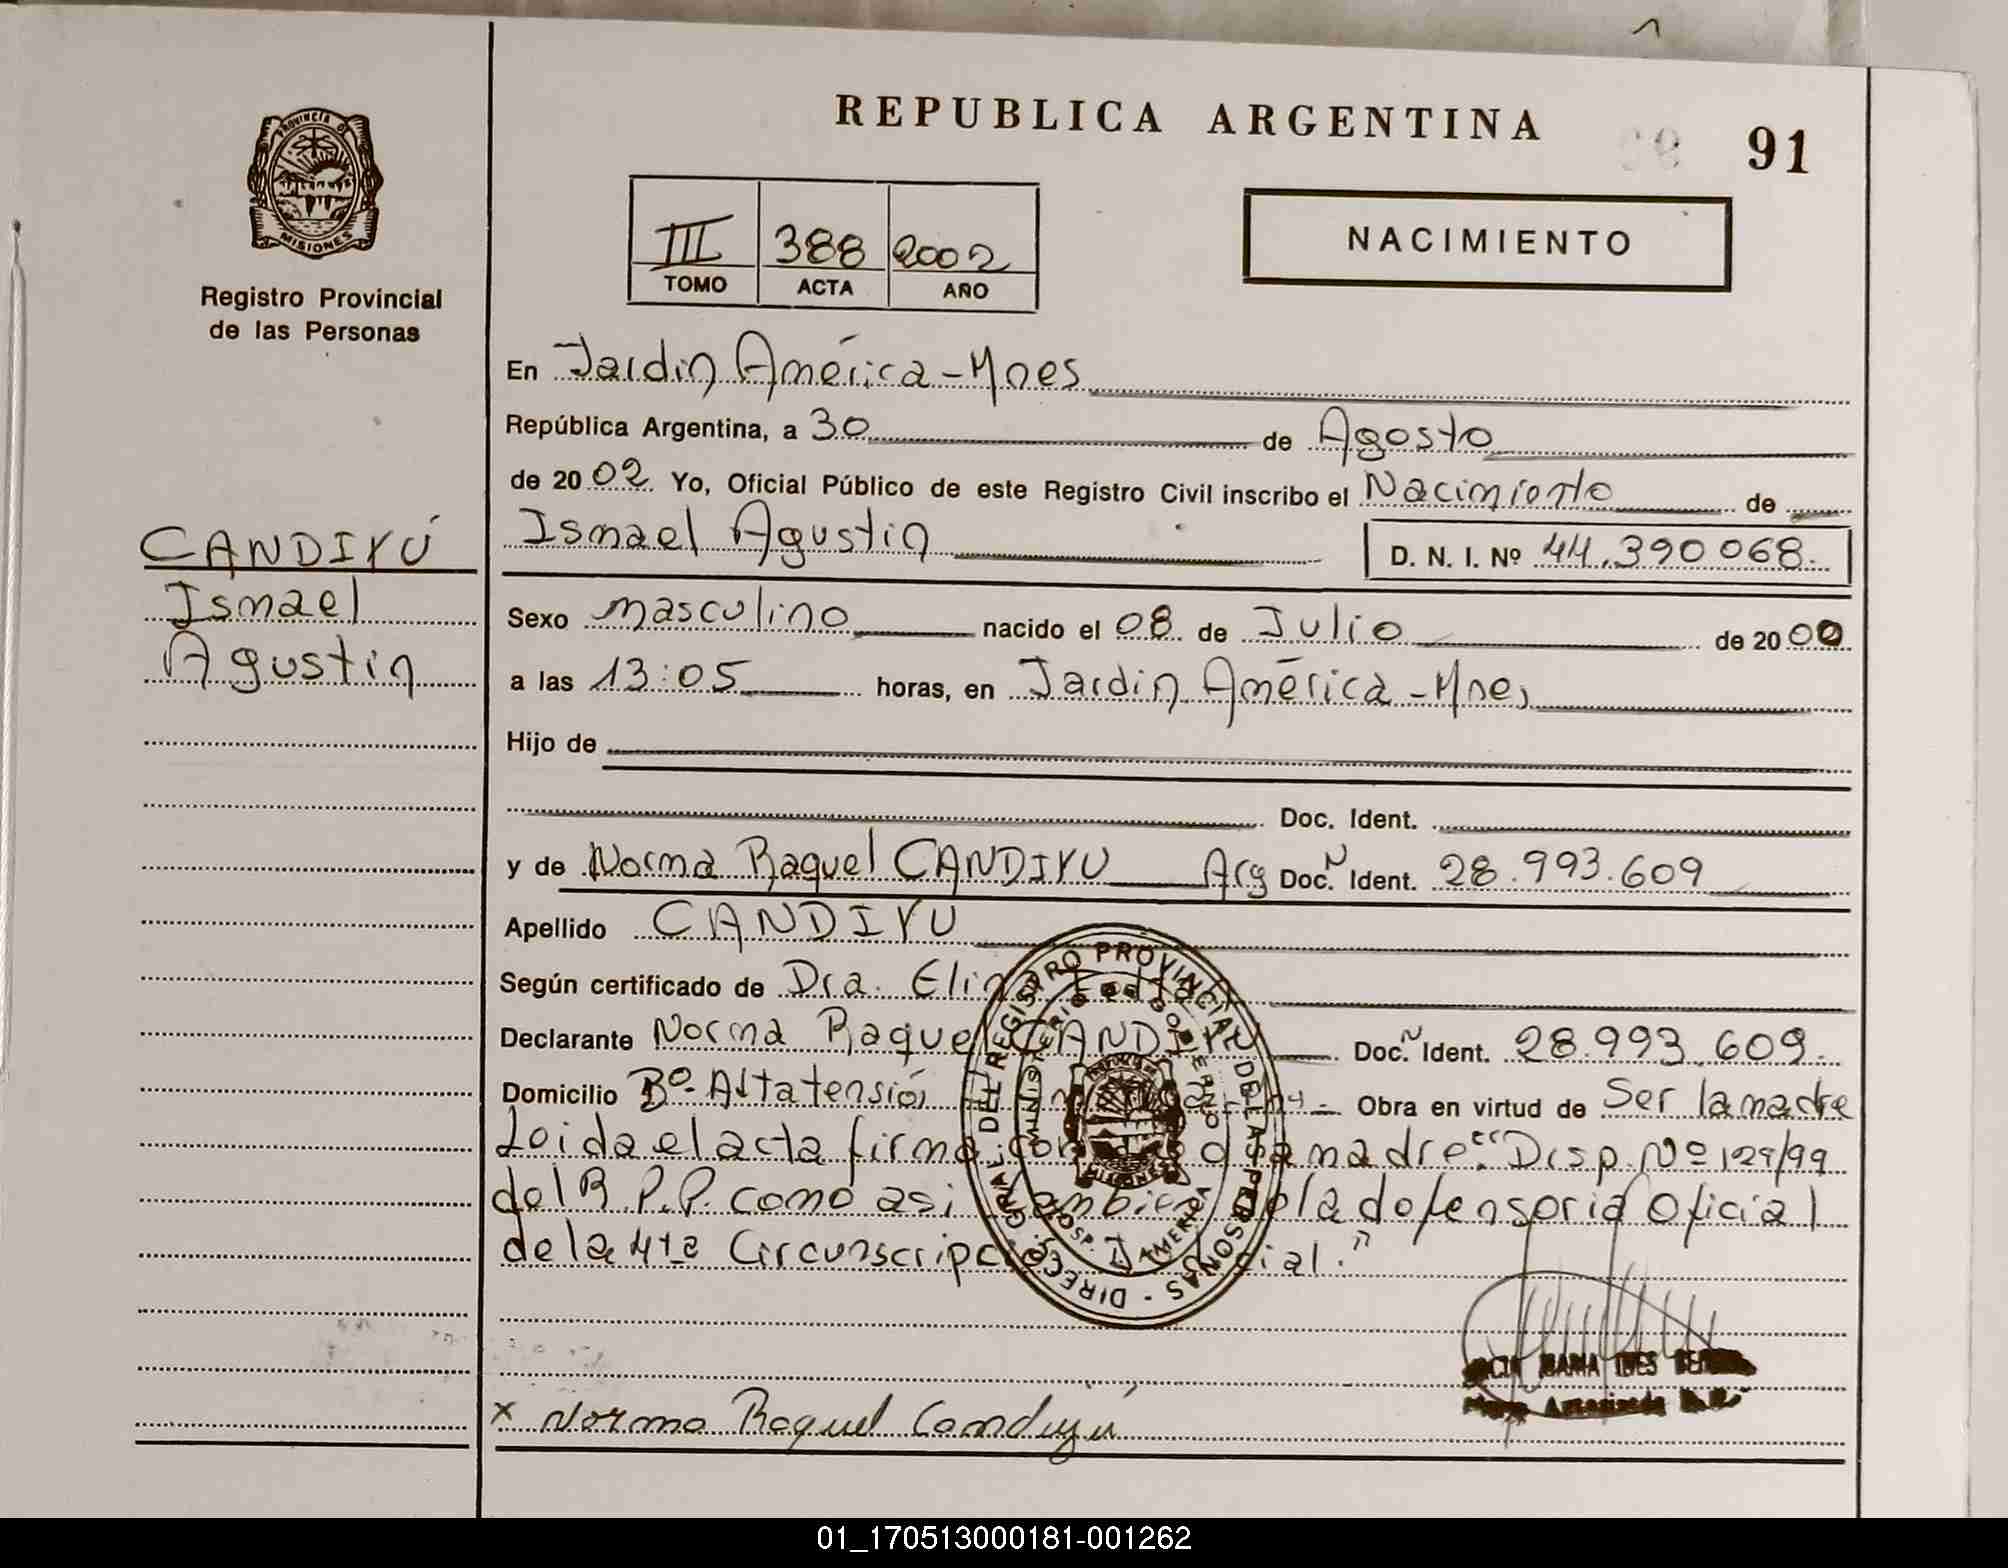 REPUBLICA ARGENTINA
91
PROVINCIA DE
MISIONES
Registro Provincial
de las Personas
III 388 2002
TOMO ACTA AÑO
NACIMIENTO
En Jardin América-Mnes
República Argentina, a 30 de Agosto
de 2002. Yo, Oficial Público de este Registro Civil inscribo el Nacimiento de
Ismael Agustin
D. N. I. Nº 44.390068.
CANDIYÚ
Ismael
Agustin
Sexo masculino nacido el 08 de Julio de 2000
a las 13:05 horas, en Jardin América-Mnes
Hijo de
Doc. Ident.
y de Norma Raquel CANDIYU Arg Doc. N Ident. 28.993.609
Apellido CANDIYU
Según certificado de Dra.
Declarante Norma Raquel CANDIYU Doc. N Ident. 28.993.609.
Domicilio Bº- Alta tensión Obra en virtud de Ser la madre
Loida el acta firma madre: "Disp. Nº 129/99
del R.P.P. como asi de la defensoria Oficial
de la 4ta
DIRECC. GRAL. DEL REGISTRO PROVINCIAL DE LAS PERSONAS
MINISTERIO DE GOBIERNO
MISIONES
AMERICA
MARIA INES
x Norma Raquel Candiyú
01_170513000181-001262